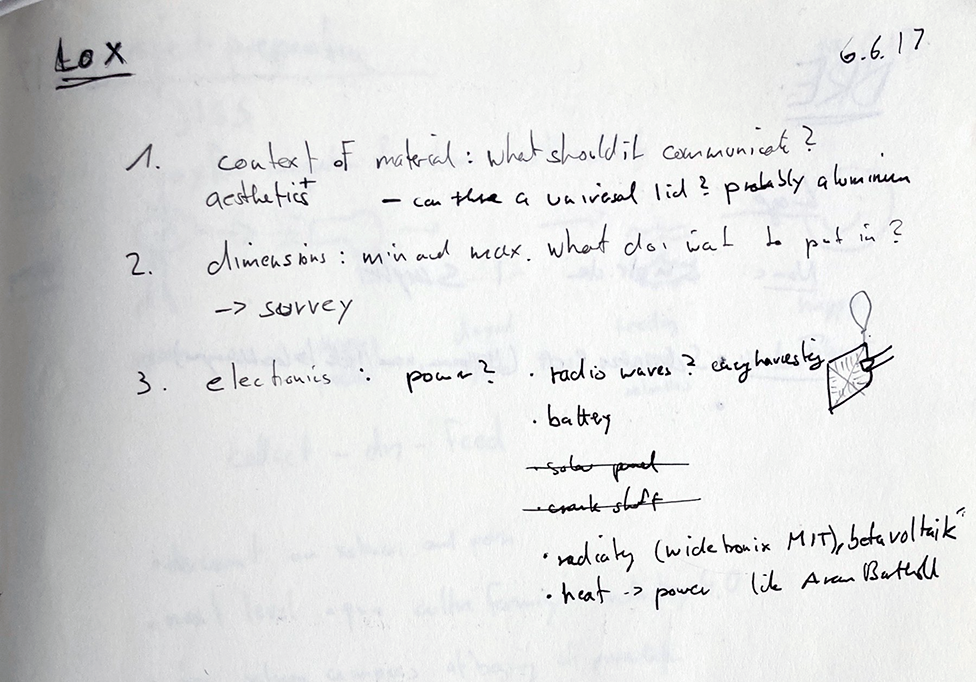 LOX
6.6.17
1. context of material : what should it communicate ?
aesthetics + - can there a universal lid ? probably aluminium
2. dimensions : min and max. what do i want to put in ?
-> survey
3. electronics : power ? · radio waves ? energyharvesting
· battery
· solar panel
· crank shaft
· (widetronix MIT), "betavoltaik"
· heat -> power like Aram Bartholl